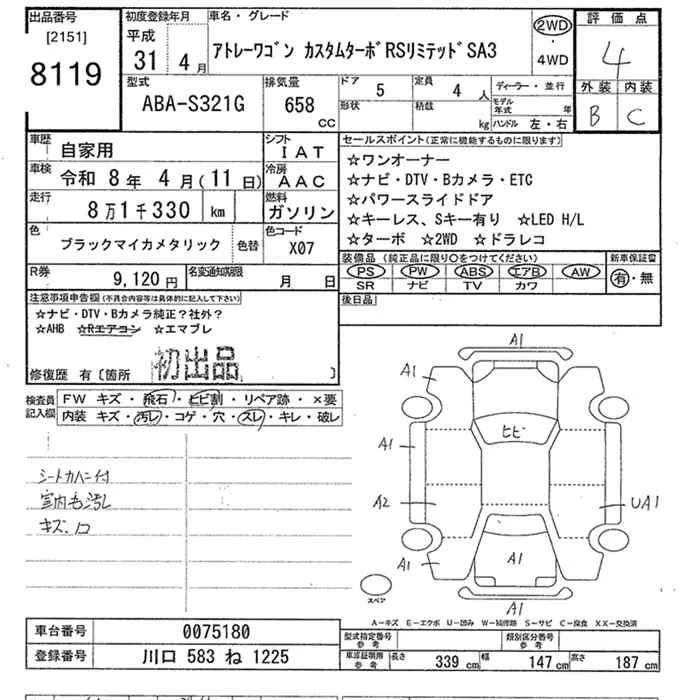 出品番号
[2151]
8119
初度登録年月
平成
31年 4月
車名・グレード
アトレーワゴン カスタムターボRSリミテッドSA3
2WD
・
4WD
評価点
4
外装 内装
B C
型式
ABA-S321G
排気量
658 cc
ドア 5
形状
定員 4 人
積載 kg
ディーラー・並行
モデル年式 年
ハンドル 左・右
車歴 自家用
シフト IAT
車検 令和 8年 4月(11日)
冷房 AAC
走行 8万1千330 km
燃料 ガソリン
色 ブラックマイカメタリック 色替
色コード X07
R券 9,120円
名変通知期限 月 日
セールスポイント(正常に機能するものに限ります)
☆ワンオーナー
☆ナビ・DTV・Bカメラ・ETC
☆パワースライドドア
☆キーレス、Sキー有り ☆LED H/L
☆ターボ ☆2WD ☆ドラレコ
装備品 (純正品に限り○をつけてください)
PS PW ABS エアB AW
SR ナビ TV カワ
新車保証書
有・無
後日品
注意事項申告欄(不具合内容等は具体的に記入して下さい)
☆ナビ・DTV・Bカメラ純正?社外?
☆AHB ☆Rエアコン ☆エマブレ
初出品
修復歴 有〔箇所 〕
検査員記入欄
FW キズ・飛石・ヒビ割・リペア跡・×要
内装 キズ・汚レ・コゲ・穴・スレ・キレ・破レ
シートカバー付
室内毛汚レ
キズ、
A1
A1
A1
A2
A1
ヒビ
A1
A1
UA1
A1
スペア
A-キズ E-エクボ U-凹み W-補修跡 S-サビ C-腐食 XX-交換済
車台番号 0075180
登録番号 川口 583 ね 1225
型式指定番号 参考
類別区分番号 参考
車庫証明用 参考
長さ 339 cm 幅 147 cm 高さ 187 cm